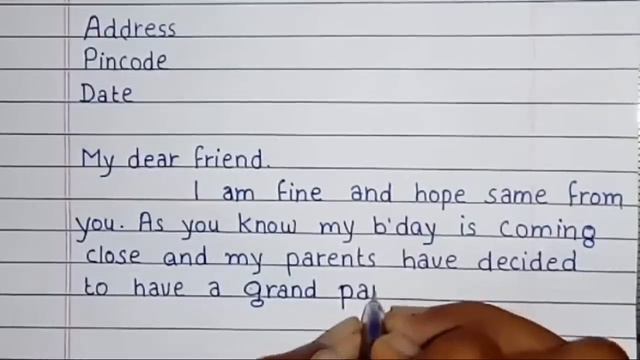 Address
Pincode
Date
My dear friend.
I am fine and hope same from
you. As you know my b'day is coming
close and my parents have decided
to have a grand pa